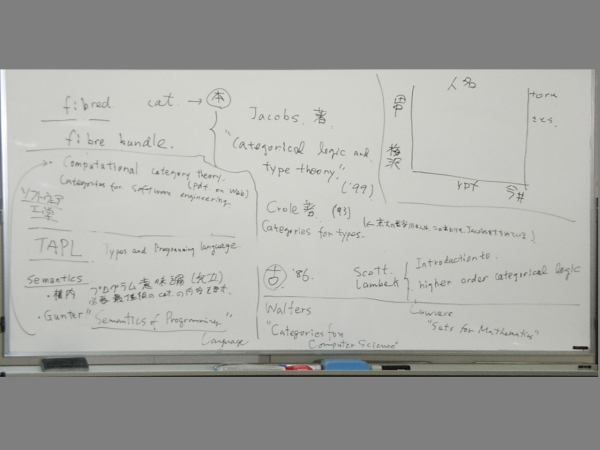 fibred cat. → 本
fibre bundle.
Computational category theory.
(pdf on web)
Categories for software engineering
ソフトウェア
工学
TAPL Types and Programming language
Semantics
・横内 プログラム意味論 (共立)
必要最低限の cat. の内容
・Gunter "Semantics of Programming"
Language
Jacobs 著.
"Categorical logic and
type theory." ('99)
Crole 著 (93)
Categories for types.
古 '86.
Scott.
Lambek
Introduction to
higher order categorical logic
Walters
"Categories for
Computer Science"
Lawvere
"Sets for Mathematics"
人名
田中
梅沢
toru
 xxs.
ypt
今井